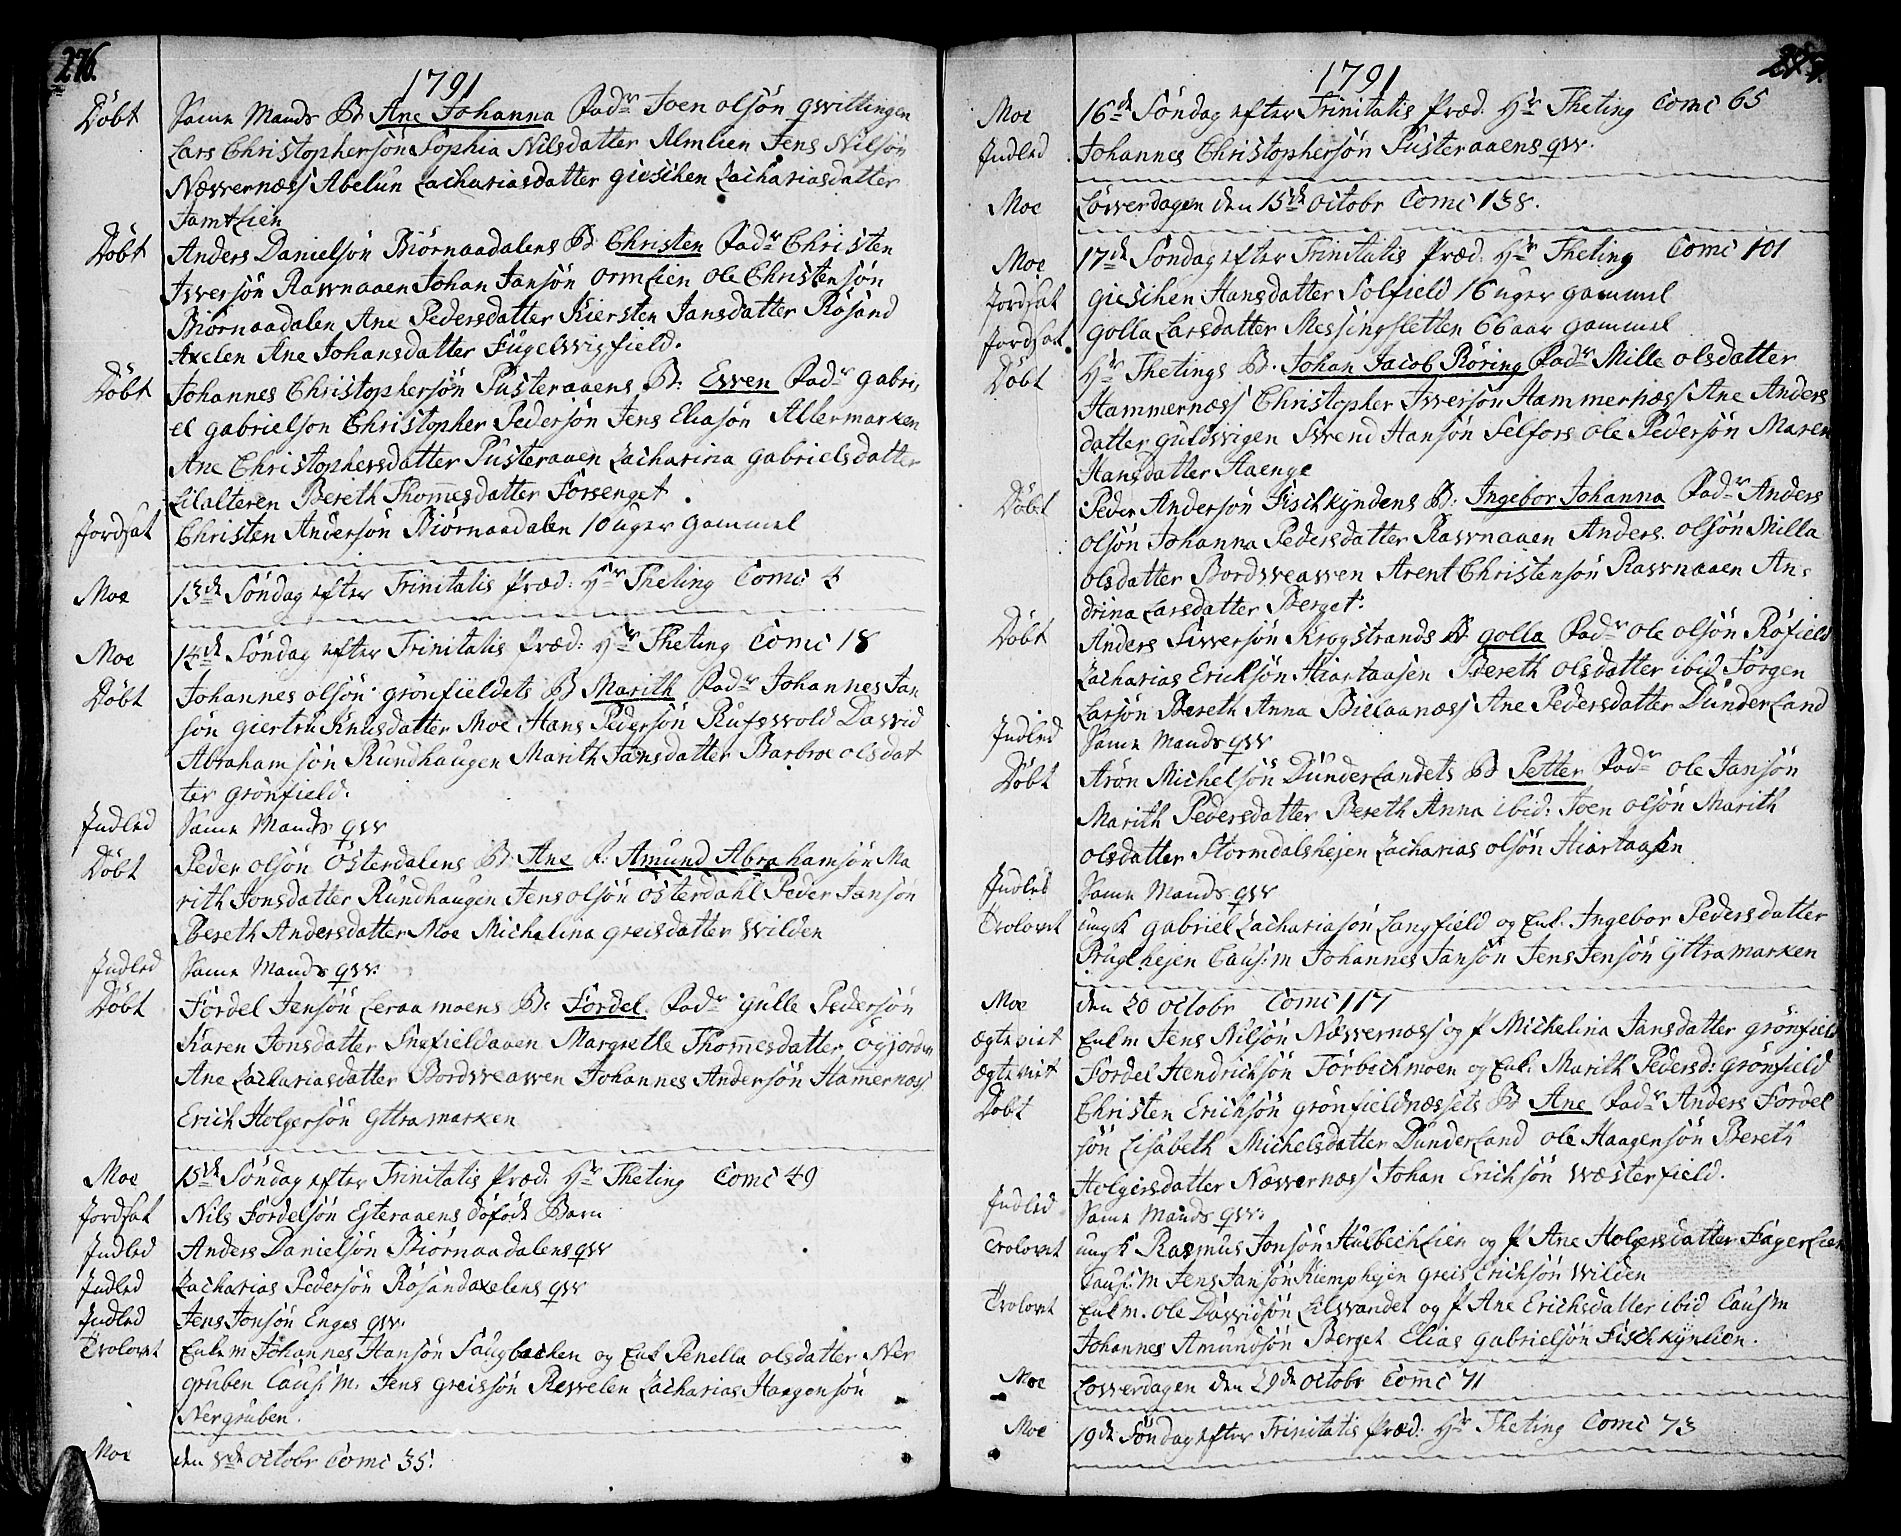 276.
1791
Döbt Same Mands B Ane Johanna Fadr Joen olsön qwittingen
Lars Christophersön Sophia Nilsdatter Almlien Jens Nilsön
Næwernæss Abelun Zachariasdatter giesken Zachariasdatter
Jamtlien
Döbt Anders Danielsön Biörnaadalens B. Christen Fadr Christen
Iwersön Rawnaaen Johan Jansön ormlien ole Christensön
Biörnaadalen Ane Pedersdatter Kiersten Jansdatter Rösand
Axelen Ane Johansdatter Fugelwigfield.
Döbt Johannes Christophersön Pusteraaens B: Ewen Fadr gabri,
el gabrielson Christopher Pedersön Jens Eliasön Altermarken
Ane Christophersdatter Pusteraaen Zacharina gabrielsdatter
Lilalteren Bereth Thommesdatter Forsenget.
Jordsat Christen Andersön Biörnaadalen 10 uger gammel
Moe 13de Söndag efter Trinitatis Præd: Hr Theting Comc 4
Moe 14de Söndag efter Trinitatis Præd: Hr Theting Comc 18
Döbt Johannes olsön grönfieldets B Marith Fadr Johannes Jan
sön giertru Knusdatter Moe Hans Pedersön Rufswold Dawid
Abrahamsön Rundhaugen Marith Jansdatter Barbroe olsdat
ter grönfield.
Indled Same Mands qw
Döbt Peder olsön österdalens B: Ane F: Amund Abrahamsön Ma
rith Jonsdatter Rundhaugen Jens olsön österdahl Peder Jansön
Bereth Andersdatter Moe Michelina greisdatter Wilden
Indled Same Mands qw.
Döbt Fordel Jensön Leraamoens B: Fordel. Fadr gulle Pedersön
Karen Jonsdatter Snefieldaaen Margrethe Thommesdatter ogjorden
Ane Zachariasdatter Bordweawen Johannes Andersön Hamernæss
Erich Holgersön Yttramarken
Moe 15de Söndag efter Trinitatis Præd. Hr Theting Comc 49
Jordsat Nils Fordelsön Ejteraaens döfödt Barn
Indled Anders Danielsön Biörnaadalens qw
Indled Zacharias Pedersön Rösandaxelens qw
Indled Jens Jonsön Enges qw.
Trolovet Enkm Johannes Hansön Saugbacken og Enk Penella olsdatter Ner
gruben Caus: M. Jens greissön Rewelen Zacharias Haagensön
Nergruben.
Moe den 8de octobr Comc 35.
1791
Moe 16de Söndag efter Trinitatis Præd. Hr Theting Comc 65
Indled Johannes Christophersön Pusteraaens qw.
Moe Löwerdagen den 15de octobr Comc 138.
Moe 17de Söndag efter Trinitatis Præd: Hr Theting Comc 101
Jordsat giesken Hansdatter Solfield 16 uger gammel
Jordsat. golla Larsdatter Messingsletten 66 aar gammel
Döbt Hr Thetings B. Johan Jacob Röring Fadr Mille olsdatter
Hammernæss Christopher Iwersön Hammernæss Ane Anders
datter guldwigen Swend Hansön Selfors ole Pedersön Maren
Hansdatter Staenge
Döbt Peder Andersön Fischkyndens B: Ingebor Johanna Fadr Anders
olsön Johanna Pedersdatter Rawnaaen Anders. olsön Milla
olsdatter Bordweawen Arent Christensön Rawnaaen An,
drina Larsdatter Berget.
Döbt Anders Siwersön Krogstrands B. golla Fadr ole olsön Röfield
Zacharias Ericksön Hiartaasen Bereth olsdatter ibid Jörgen
Larsön Bereth Anna Bielaanæss Ane Pedersdatter Dunderland
Indled Same Mands qw
Döbt Arön Michelsön Dunderlandets B Petter Fadr ole Jansön
Marith Pedersdatter Bereth Anna ibid: Joen olsön Marith
olsdatter Stormdalshejen Zacharias olsön Hiartaasen
Indled Same Mands qw
Trolovet ungk gabriel Zachariasön Langfield og Enk. Ingebor Pedersdatter
Pruglhejen Caus: M Johannes Jansön Jens Jensön Yttramarken
Moe den 20 octobr Comc 117
ægteviet Enkm Jens Nilsön Næwernæss og P Michelina Jansdatter grönfield
ægteviet Fordel Hendrichsön Törbechmoen og Enk. Marith Pedersd: grönfield
Döbt Christen Erichsön grönfieldnæssets B Ane Fadr Anders Fordel
sön Lisabeth Michelsdatter Dunderland ole Haagensön Bereth
Holgersdatter Næwernæss Johan Erichsön Wæsterfield.
Indled Same Mands qw.
Trolovet ungk Rasmus Jonsön Hulbechlien og P Ane Holgersdatter Fagerlien
Caus: M Jens Jansön Kiemphejen greis Erichsön Wilden
Trolovet Enkm. ole Dawidsön Lilwandet og P Ane Erichsdatter ibid Caus: m
Johannes Amundsön Berget Elias gabrielsön Fischkynlien.
Moe Lowerdagen den 29de octobr Comc 71
Moe 19de Söndag efter Trinitatis Præd. Hr Theting Comc 73